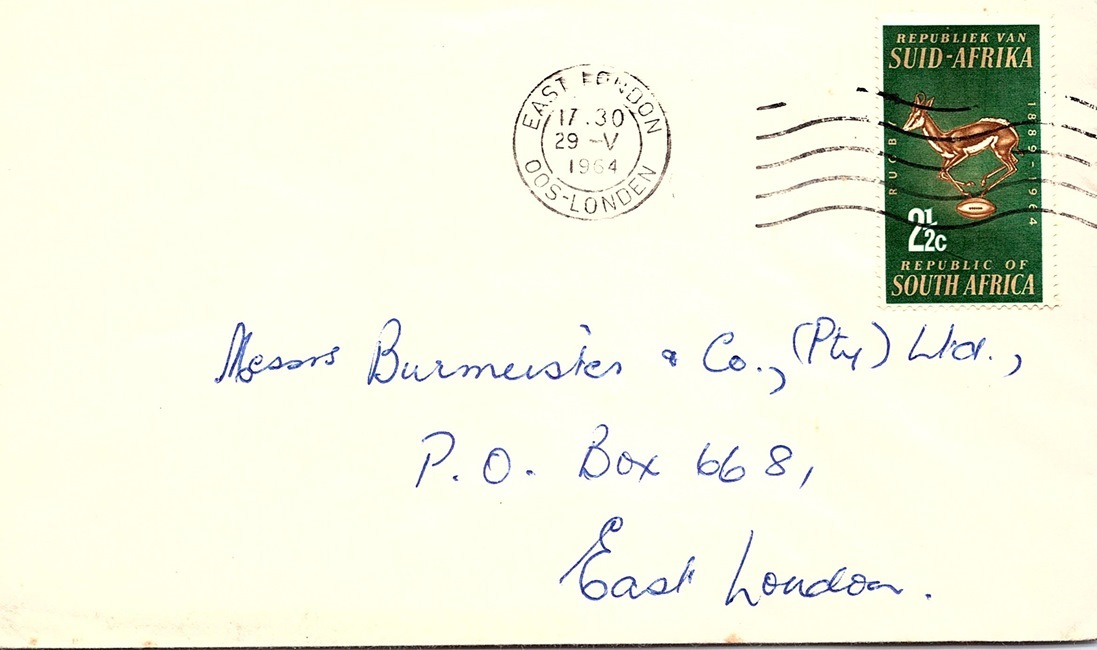 EAST LONDON
17.30
29 -V
1964
OOS-LONDEN
REPUBLIEK VAN
SUID-AFRIKA
RUGBY
1889-1964
2½c
REPUBLIC OF
SOUTH AFRICA
Messrs Burmeister & Co., (Pty) Ltd.,
P. O. Box 668,
East London.